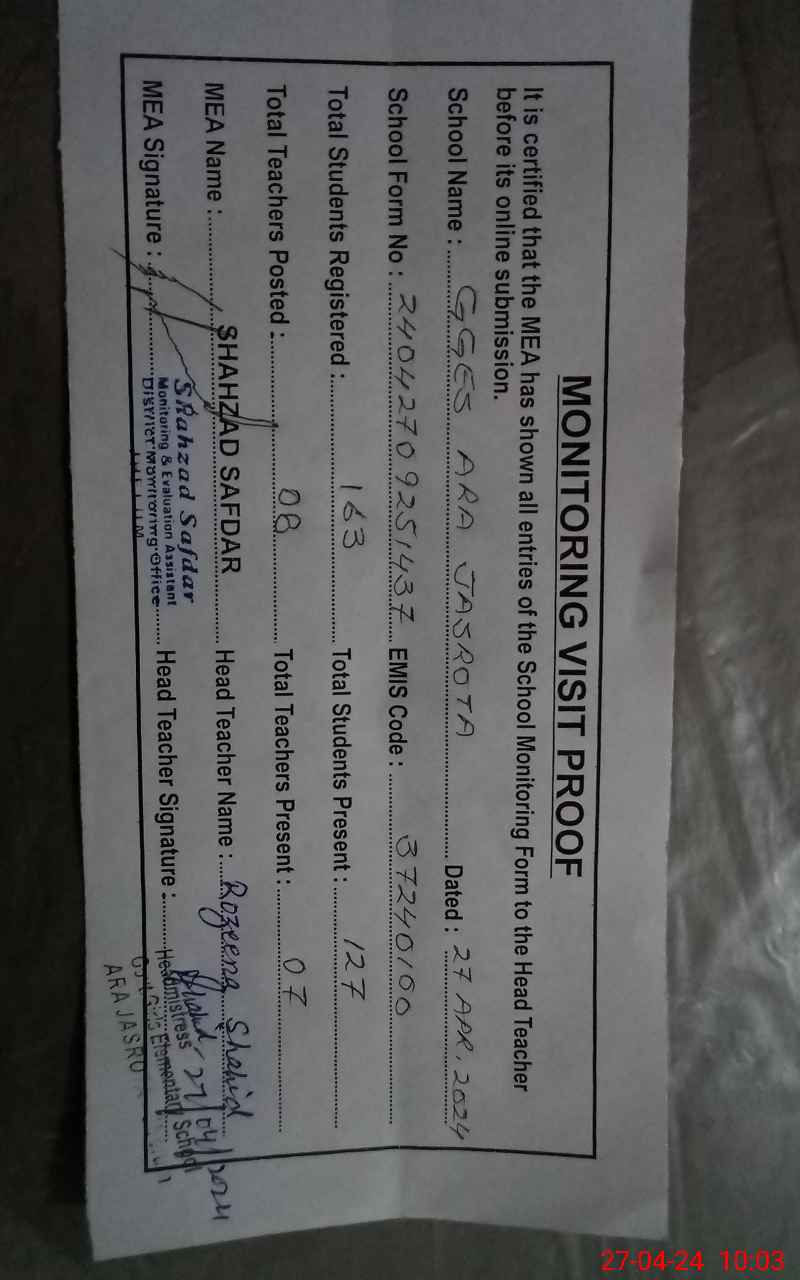 MONITORING VISIT PROOF
It is certified that the MEA has shown all entries of the School Monitoring Form to the Head Teacher
before its online submission.
School Name : GGES ARA JASROTA Dated : 27 APR, 2024
School Form No : 24042709251437 EMIS Code : 37240100
Total Students Registered : 163 Total Students Present : 127
Total Teachers Posted : 08 Total Teachers Present : 07
MEA Name : SHAHZAD SAFDAR Head Teacher Name : Rozeena Shahid
MEA Signature : Head Teacher Signature : 27/04/2024
Shahzad Safdar
Monitoring & Evaluation Assistant
District Monitoring Office
Headmistress
Govt Girls Elementary School
ARA JASRO
27-04-24 10:03